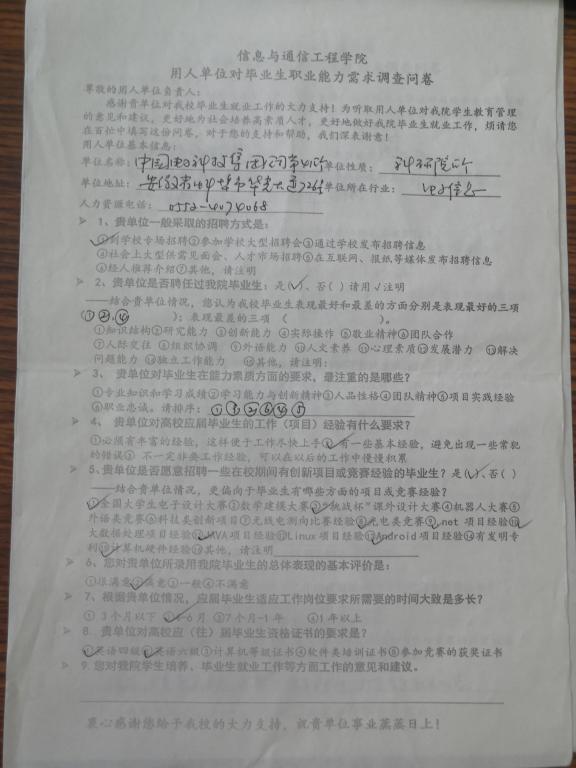 信息与通信工程学院
用人单位对毕业生职业能力需求调查问卷
尊敬的用人单位负责人：
感谢贵单位对我校毕业生就业工作的大力支持！为听取用人单位对我院学生教育管理
的意见和建议，更好地为社会培养高素质人才，更好地做好我院毕业生就业工作，烦请您
在百忙中填写这份问卷，对于您的支持和帮助，我们深表谢意！
用人单位基本信息：
单位名称：中国电子科技集团公司第41所 单位性质：科研院所
单位地址：安徽省蚌埠市华光大道726号 单位所在行业：电子信息
人力资源电话：0552-4074068
➢ 1、贵单位一般采取的招聘方式是：
①到学校专场招聘②参加学校大型招聘会③通过学校发布招聘信息
④社会上大型供需见面会、人才市场招聘⑤在互联网、报纸等媒体发布招聘信息
⑥经人推荐介绍⑦其他，请注明
➢ 2、贵单位是否聘任过我院毕业生：是(√)、否( ) 请用√注明
——结合贵单位情况，您认为我校毕业生表现最好和最差的方面分别是表现最好的三项
(①②④ )；表现最差的三项 ( )。
①知识结构②研究能力 ③创新能力 ④实际操作 ⑤敬业精神⑥团队合作
⑦人际交往 ⑧组织协调 ⑨外语能力 ⑩人文素养 ⑪心理素质⑫发展潜力 ⑬解决
问题能力 ⑭独立工作能力 ⑮其他，请注明：
➢ 3、 贵单位对毕业生在能力素质方面的要求，最注重的是哪些？
①专业知识和学习成绩②学习能力与创新精神③人品性格④团队精神⑤项目实践经验
⑥职业忠诚。请排序：①③②⑥④⑤
➢ 4、 贵单位对高校应届毕业生的工作（项目）经验有什么要求？
①必须有丰富的经验，这样便于工作尽快上手②有一些基本经验，避免出现一些常犯
的错误③ 不一定非要工作经验，可以在以后的工作中慢慢积累
➢ 5、贵单位是否愿意招聘一些在校期间有创新项目或竞赛经验的毕业生？ 是(√)、否( )
——结合贵单位情况，更偏向于毕业生有哪些方面的项目或竞赛经验？
①全国大学生电子设计大赛②数学建模大赛③“挑战杯”课外设计大赛④机器人大赛⑤
外语类竞赛⑥科技类创新项目⑦无线电测向比赛经验⑧光电类竞赛⑨.net 项目经验⑩
大数据处理项目经验⑪JAVA项目经验⑫Linux项目经验⑬Android项目经验⑭有发明专
利⑮计算机硬件经验⑯其他，请注明
➢ 6、您对贵单位所录用我院毕业生的总体表现的基本评价是：
①很满意②满意③一般④不满意
➢ 7、根据贵单位情况，应届毕业生适应工作岗位要求所需要的时间大致是多长？
① 3个月以下 ②3-6月 ③7个月-1年 ④1年以上
➢ 8、贵单位对高校应（往）届毕业生资格证书的要求是？
①英语四级②英语六级③计算机等级证书④软件类培训证书⑤参加竞赛的获奖证书
➢ 9、您对我院学生培养、毕业生就业工作等方面工作的意见和建议。
衷心感谢您给予我校的大力支持，祝贵单位事业蒸蒸日上！